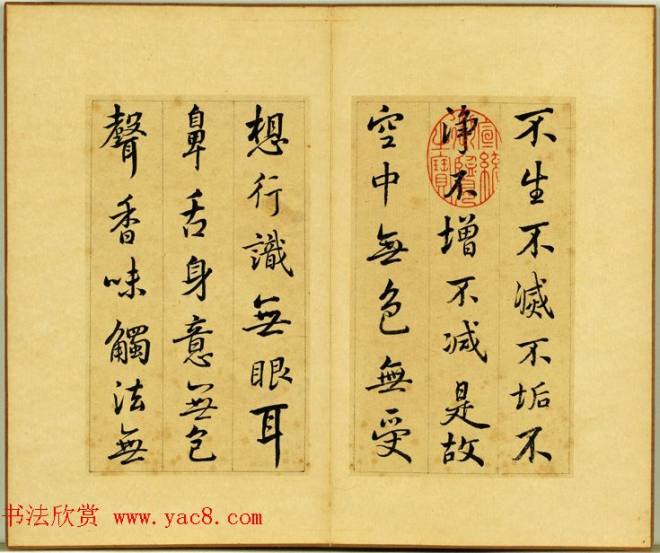 不生不滅不垢不
淨不增不減是故
空中無色無受
想行識無眼耳
鼻舌身意無色
聲香味觸法無
宣統御覽之寶
书法欣赏 www.yac8.com